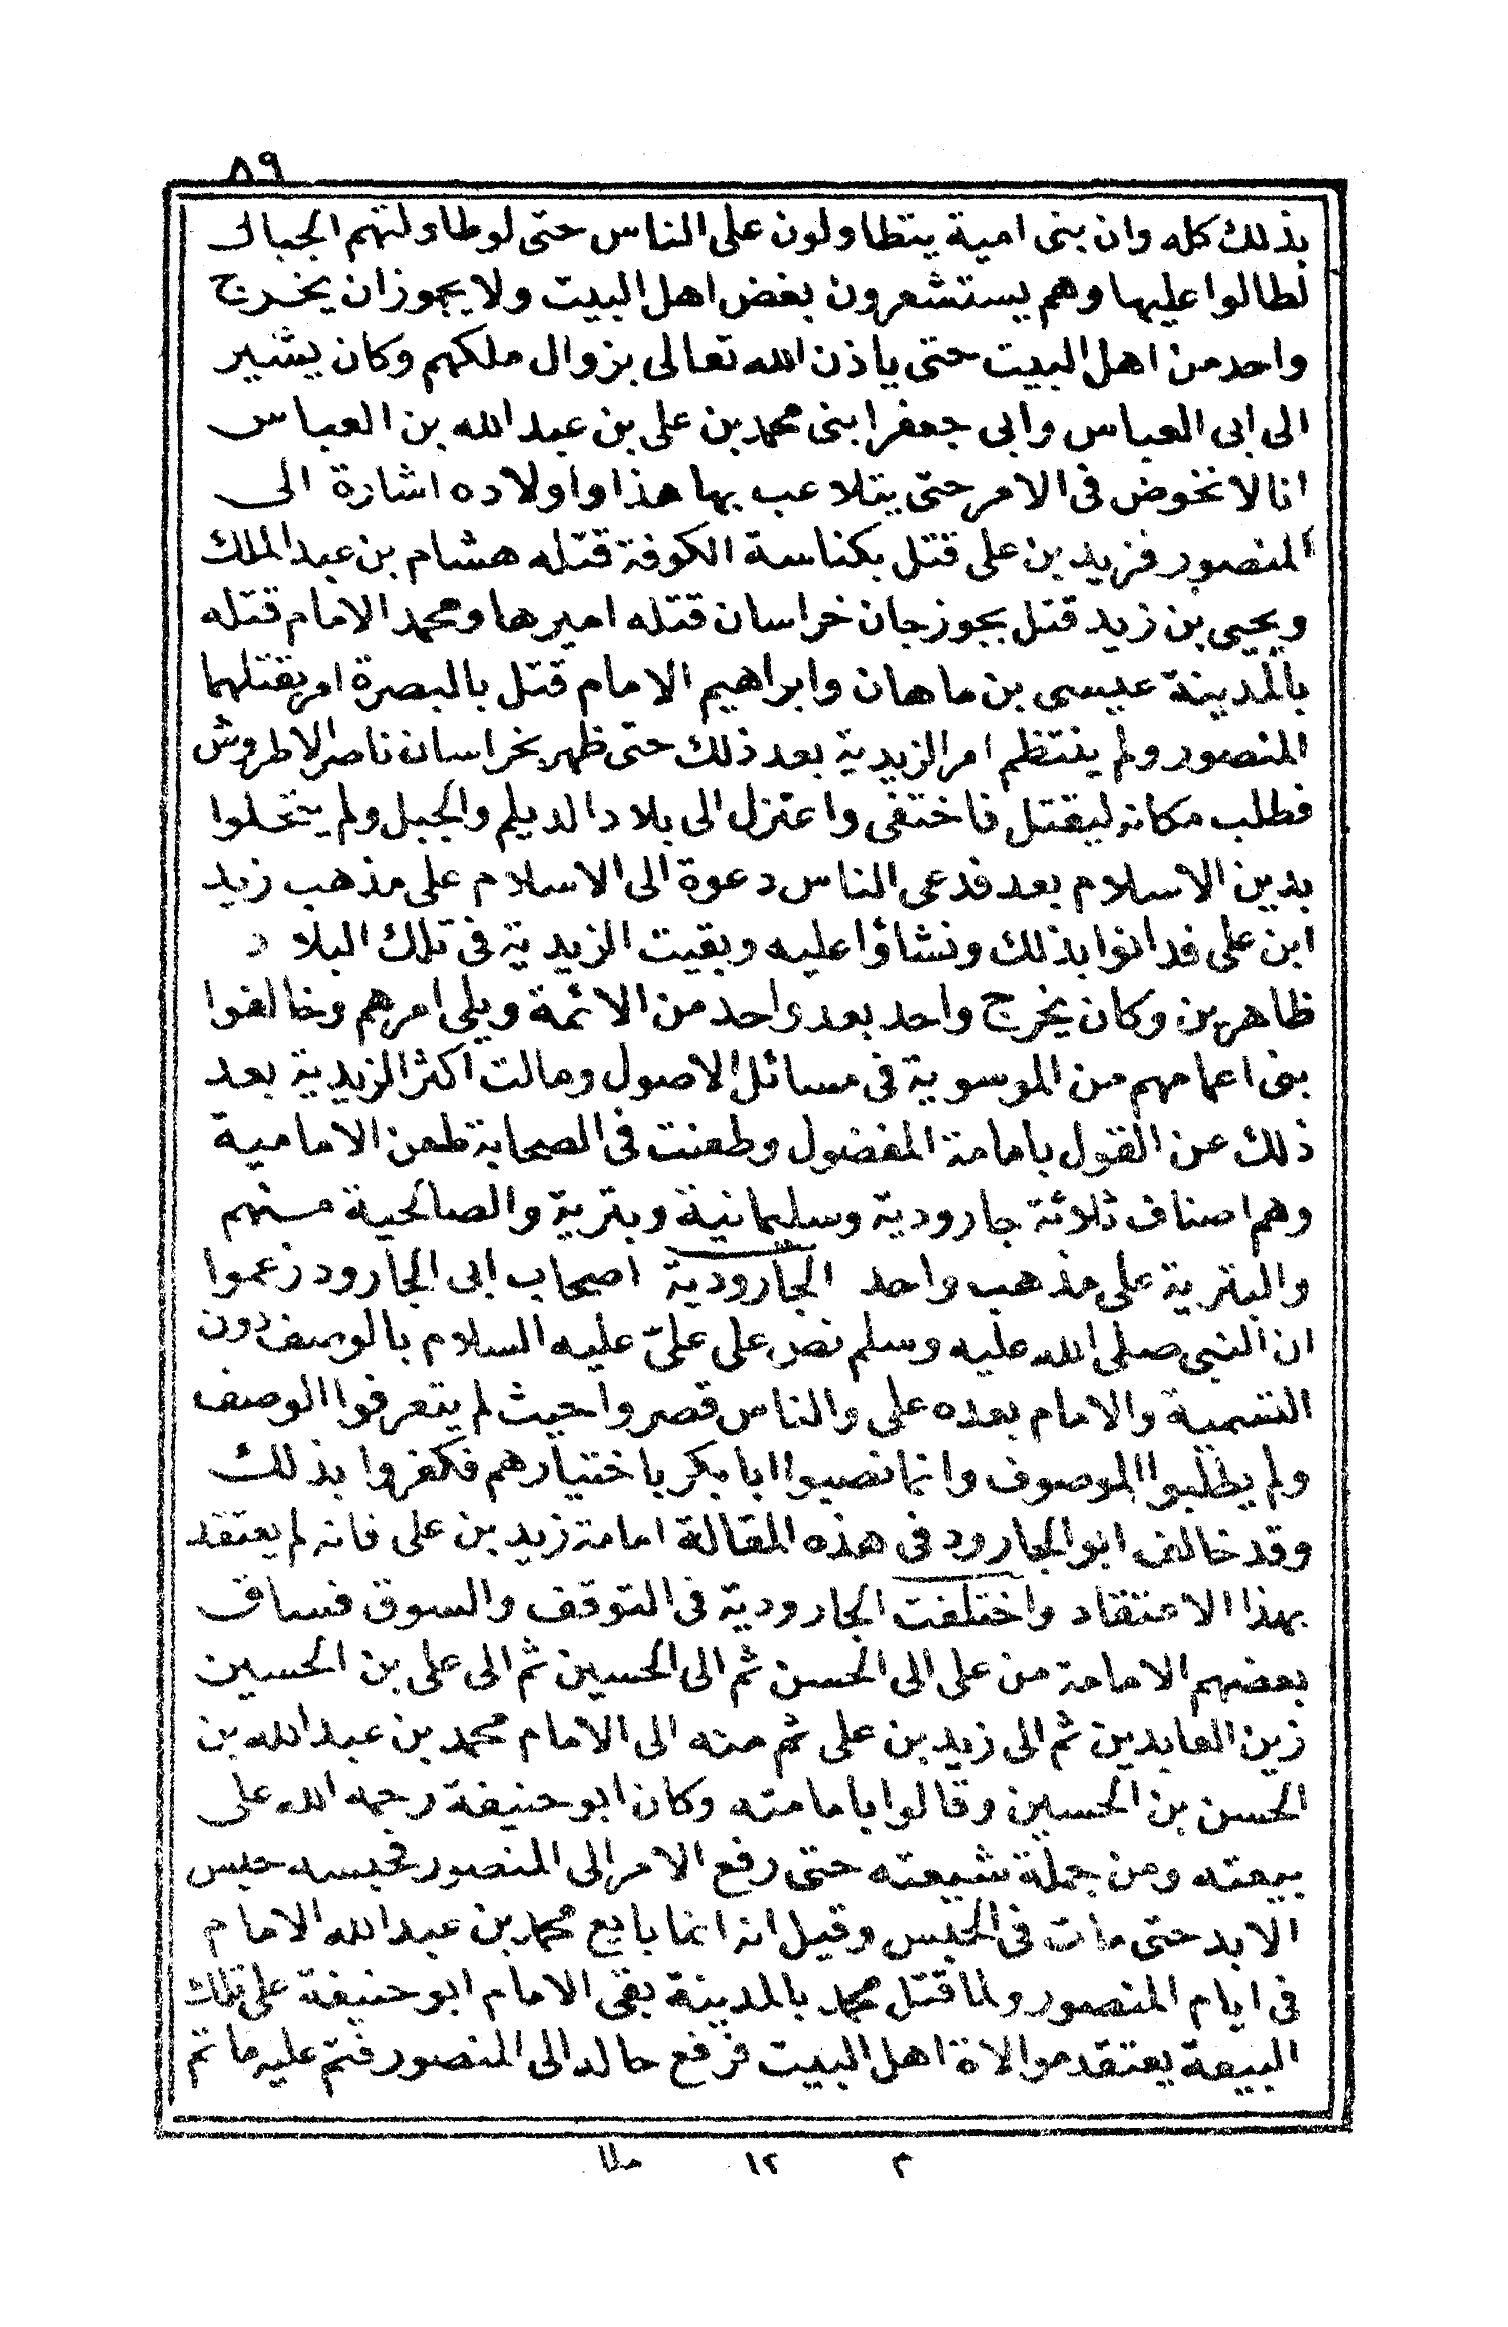 ٥٩
بذلك كله وان بنى امية يتطاولون على الناس حتى لوطاولتهم الجبال
لطالوا عليها وهم يستشعرون بغض اهل البيت ولا يجوز ان يخرج
واحد من اهل البيت حتى ياذن الله تعالى بزوال ملكهم وكان يشير
الى ابى العباس وابى جعفر ابنى محمد بن على بن عبد الله بن العباس
انا لا نخوض فى الامر حتى يتلاعب بها هذا واولاده اشارة الى
المنصور فزيد بن على قتل بكناسة الكوفة قتله هشام بن عبد الملك
ويحيى بن زيد قتل بجوزجان خراسان قتله اميرها ومحمد الامام قتله
بالمدينة عيسى بن ماهان وابراهيم الامام قتل بالبصرة امر بقتلهما
المنصور ولم ينتظم امر الزيدية بعد ذلك حتى ظهر بخراسان ناصر الاطروش
فطلب مكانه ليقتل فاختفى واعتزل الى بلاد الديلم والجبل ولم يتحلوا
بدين الاسلام بعد فدعى الناس دعوة الى الاسلام على مذهب زيد
ابن على فدانوا بذلك ونشاؤا عليه وبقيت الزيدية فى تلك البلاد
ظاهرين وكان يخرج واحد بعد واحد من الائمة ويلى امرهم وخالفوا
بنى اعمامهم من الموسوية فى مسائل الاصول ومالت اكثر الزيدية بعد
ذلك عن القول بامامة المفضول وطعنت فى الصحابة طعن الامامية
وهم اصناف ثلاثة جارودية وسليمانية وبترية والصالحية منهم
والبترية على مذهب واحد الجارودية اصحاب ابى الجارود زعموا
ان النبى صلى الله عليه وسلم نص على علىّ عليه السلام بالوصف دون
التسمية والامام بعده على والناس قصروا حيث لم يتعرفوا الوصف
ولم يطلبوا الموصوف وانما نصبوا ابا بكر باختيارهم فكفروا بذلك
وقد خالف ابو الجارود فى هذه المقالة امامة زيد بن على فانه لم يعتقد
بهذا الاعتقاد واختلفت الجارودية فى التوقف والسوق فساق
بعضهم الامامة من على الى الحسن ثم الى الحسين ثم الى على بن الحسين
زين العابدين ثم الى زيد بن على ثم منه الى الامام محمد بن عبد الله بن
الحسن بن الحسين وقالوا بامامته وكان ابو حنيفة رحمه الله على
بيعته ومن جملة شيعته حتى رفع الامر الى المنصور فحبسه حبس
الابد حتى مات فى الحبس وقيل انه انما بايع محمد بن عبد الله الامام
فى ايام المنصور ولما قتل محمد بالمدينة بقى الامام ابو حنيفة على تلك
البيعة يعتقد موالاة اهل البيت فرفع حاله الى المنصور فتم عليه ما تم
م ١٢ ملا